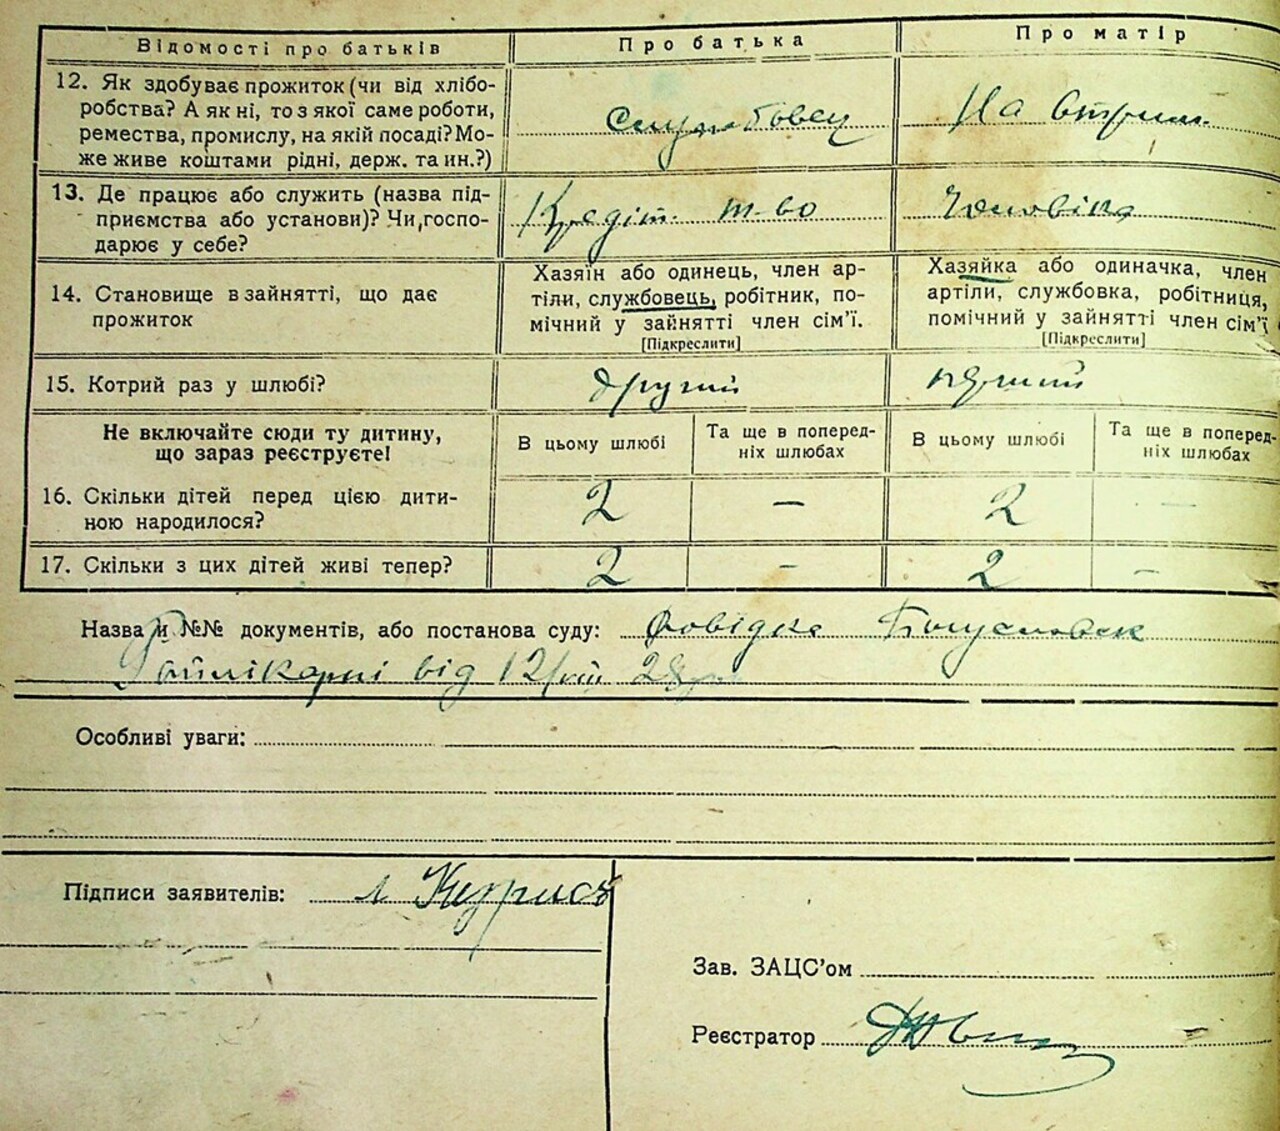 Відомості про батьків
Про батька
Про матір
12. Як здобуває прожиток (чи від хлібо-
робства? А як ні, то з якої саме роботи,
ремества, промислу, на якій посаді? Мо-
же живе коштами рідні, держ. та ин.?)
Службовец
На втрим.
13. Де працює або служить (назва під-
приємства або установи)? Чи, госпо-
дарює у себе?
Кредіт. т-во
Чоловіка
14. Становище в зайнятті, що дає
прожиток
Хазяїн або одинець, член ар-
тіли, службовець, робітник, по-
мічний у зайнятті член сім'ї.
[Підкреслити]
Хазяйка або одиначка, член
артіли, службовка, робітниця,
помічний у зайнятті член сім'ї
[Підкреслити]
15. Котрий раз у шлюбі?
другий
перший
Не включайте сюди ту дитину,
що зараз реєструєте!
В цьому шлюбі
Та ще в поперед-
ніх шлюбах
В цьому шлюбі
Та ще в поперед-
ніх шлюбах
16. Скільки дітей перед цією дити-
ною народилося?
2 — 2 —
17. Скільки з цих дітей живі тепер?
2 - 2 —
Назва й №№ документів, або постанова суду: Довідка Богуславськ
Райлікарні від 12/VIII 28р
Особливі уваги:
Підписи заявителів:
Зав. ЗАЦС'ом
Реєстратор